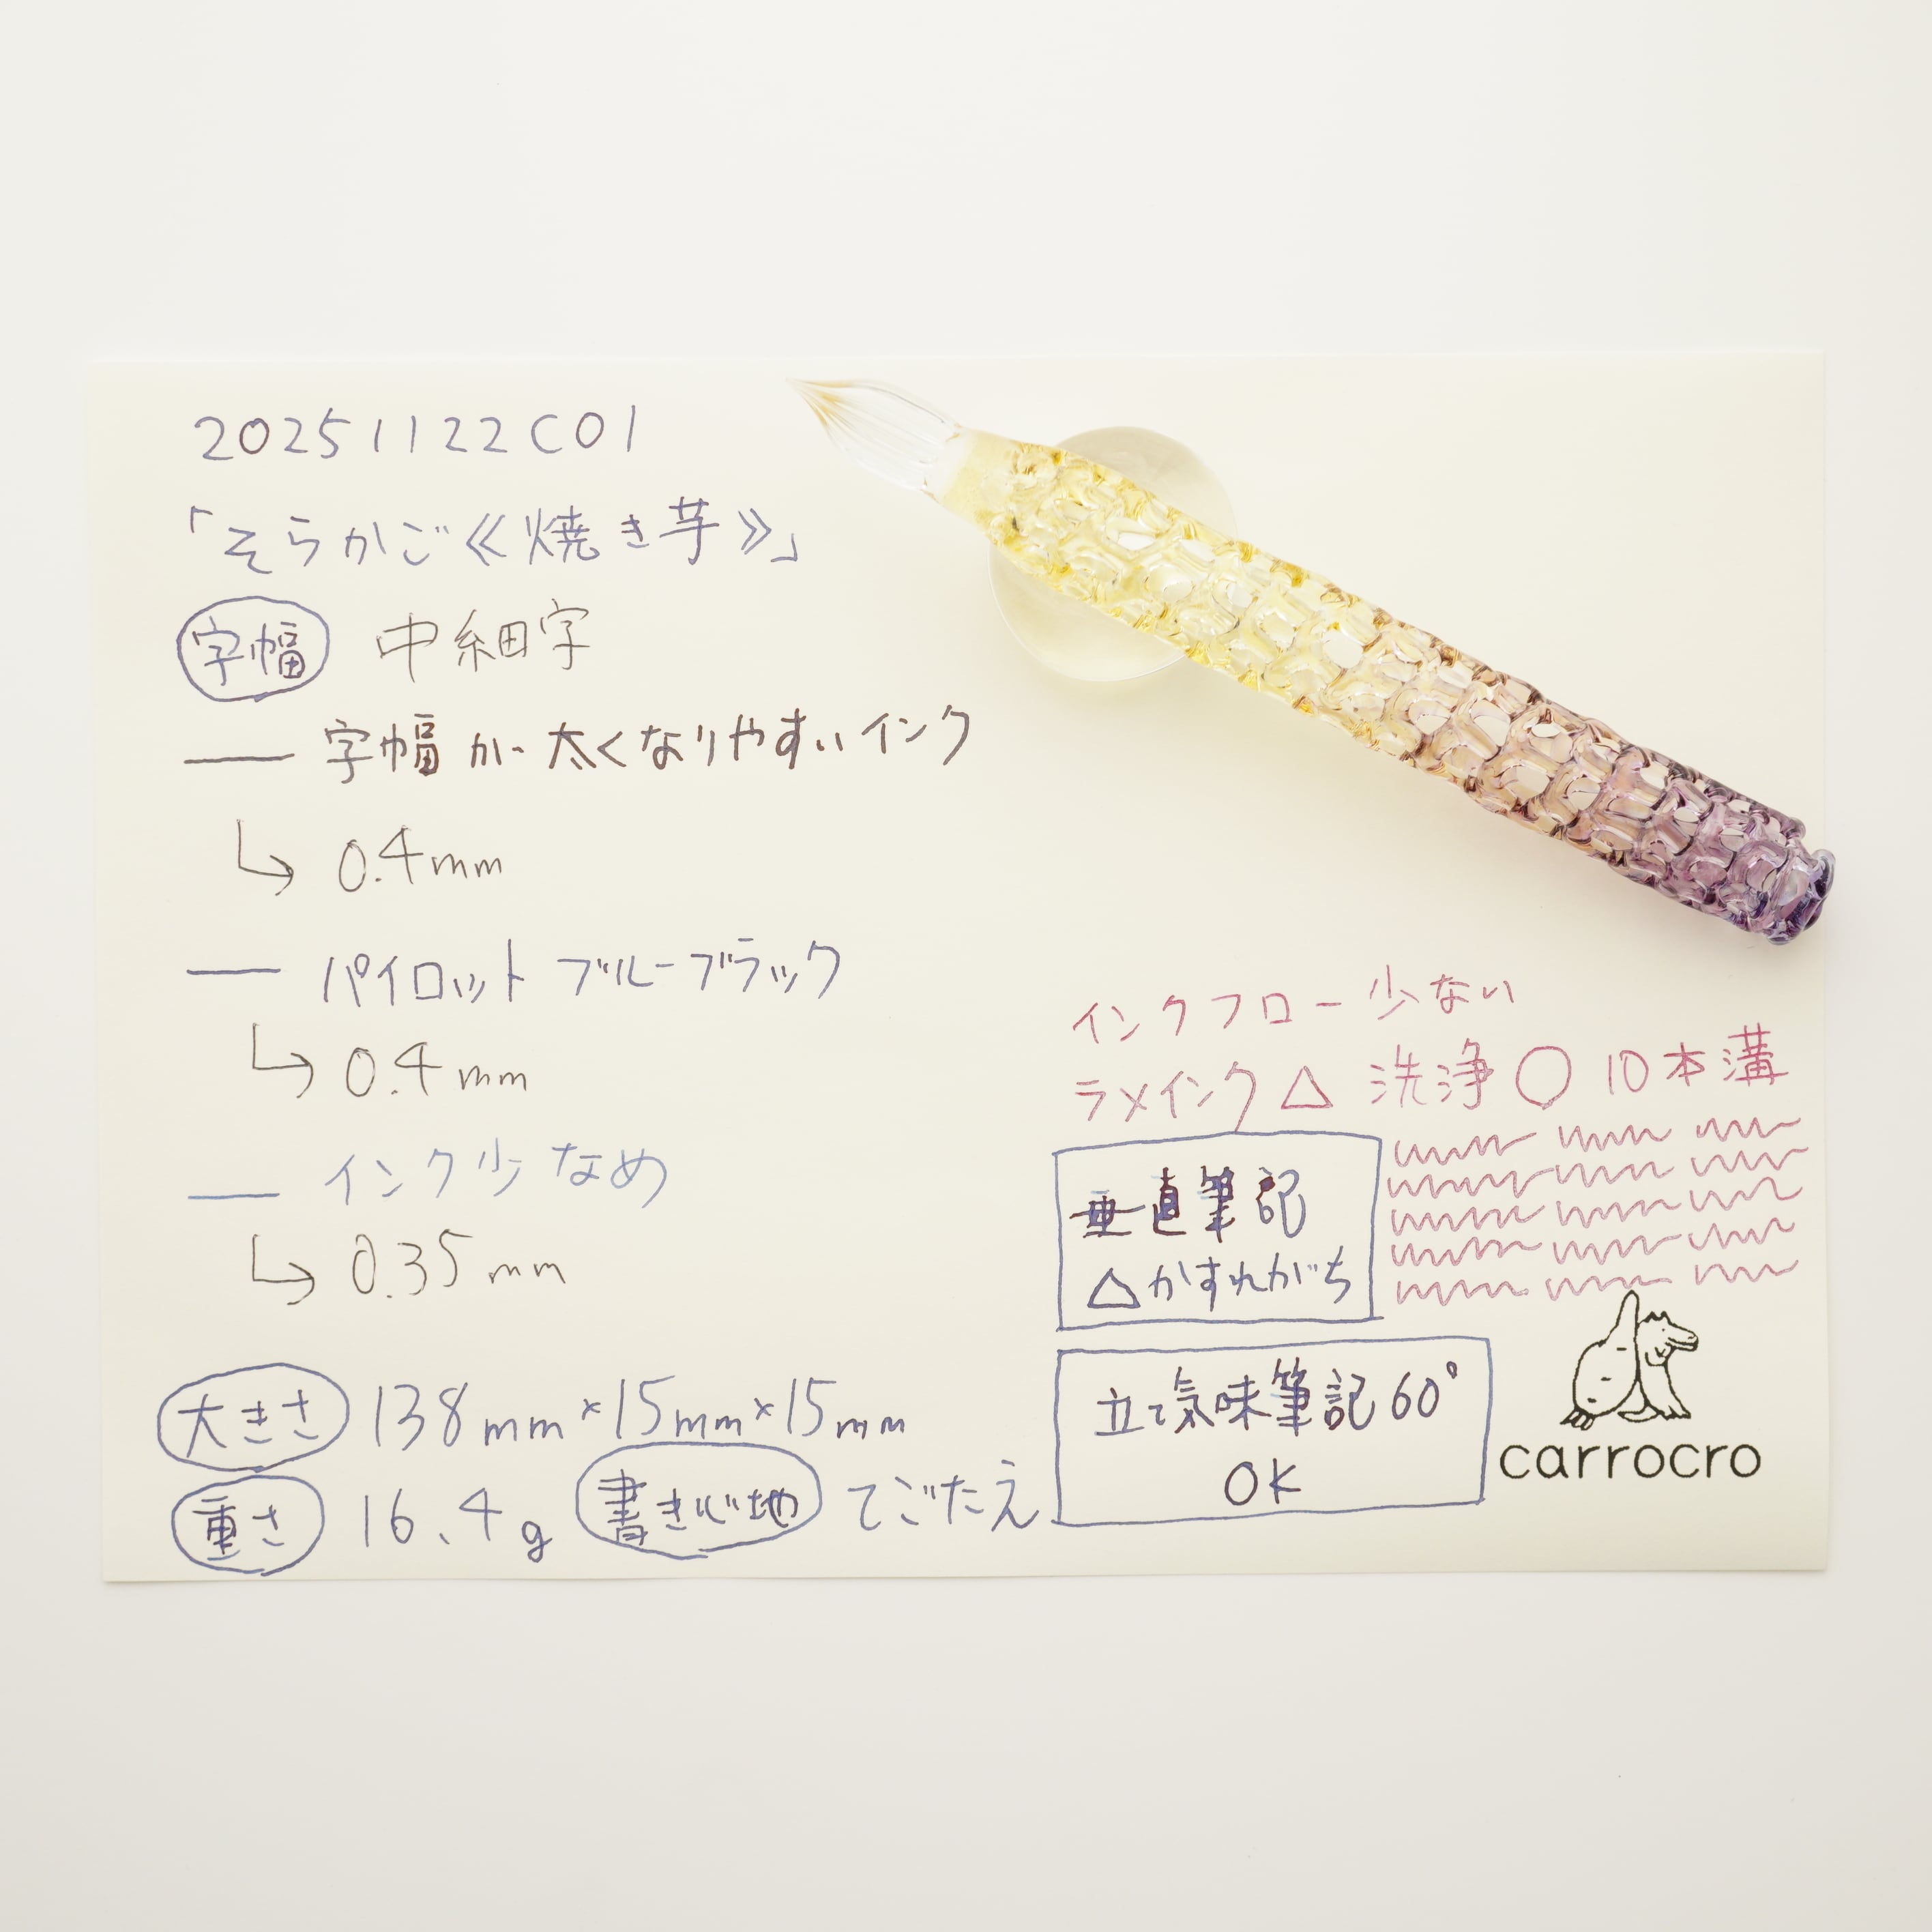 20251122C01
「そらかご≪焼き芋≫」
字幅 中細字
― 字幅が太くなりやすいインク
↳ 0.4mm
― パイロット ブルーブラック
↳ 0.4mm
― インク少なめ
↳ 0.35mm
大きさ 138mm×15mm×15mm
重さ 16.4g 書き心地 てごたえ
インクフロー少ない
ラメインク△ 洗浄○ 10本溝
垂直筆記
△かすれがち
立て気味筆記60°
OK
carrocro